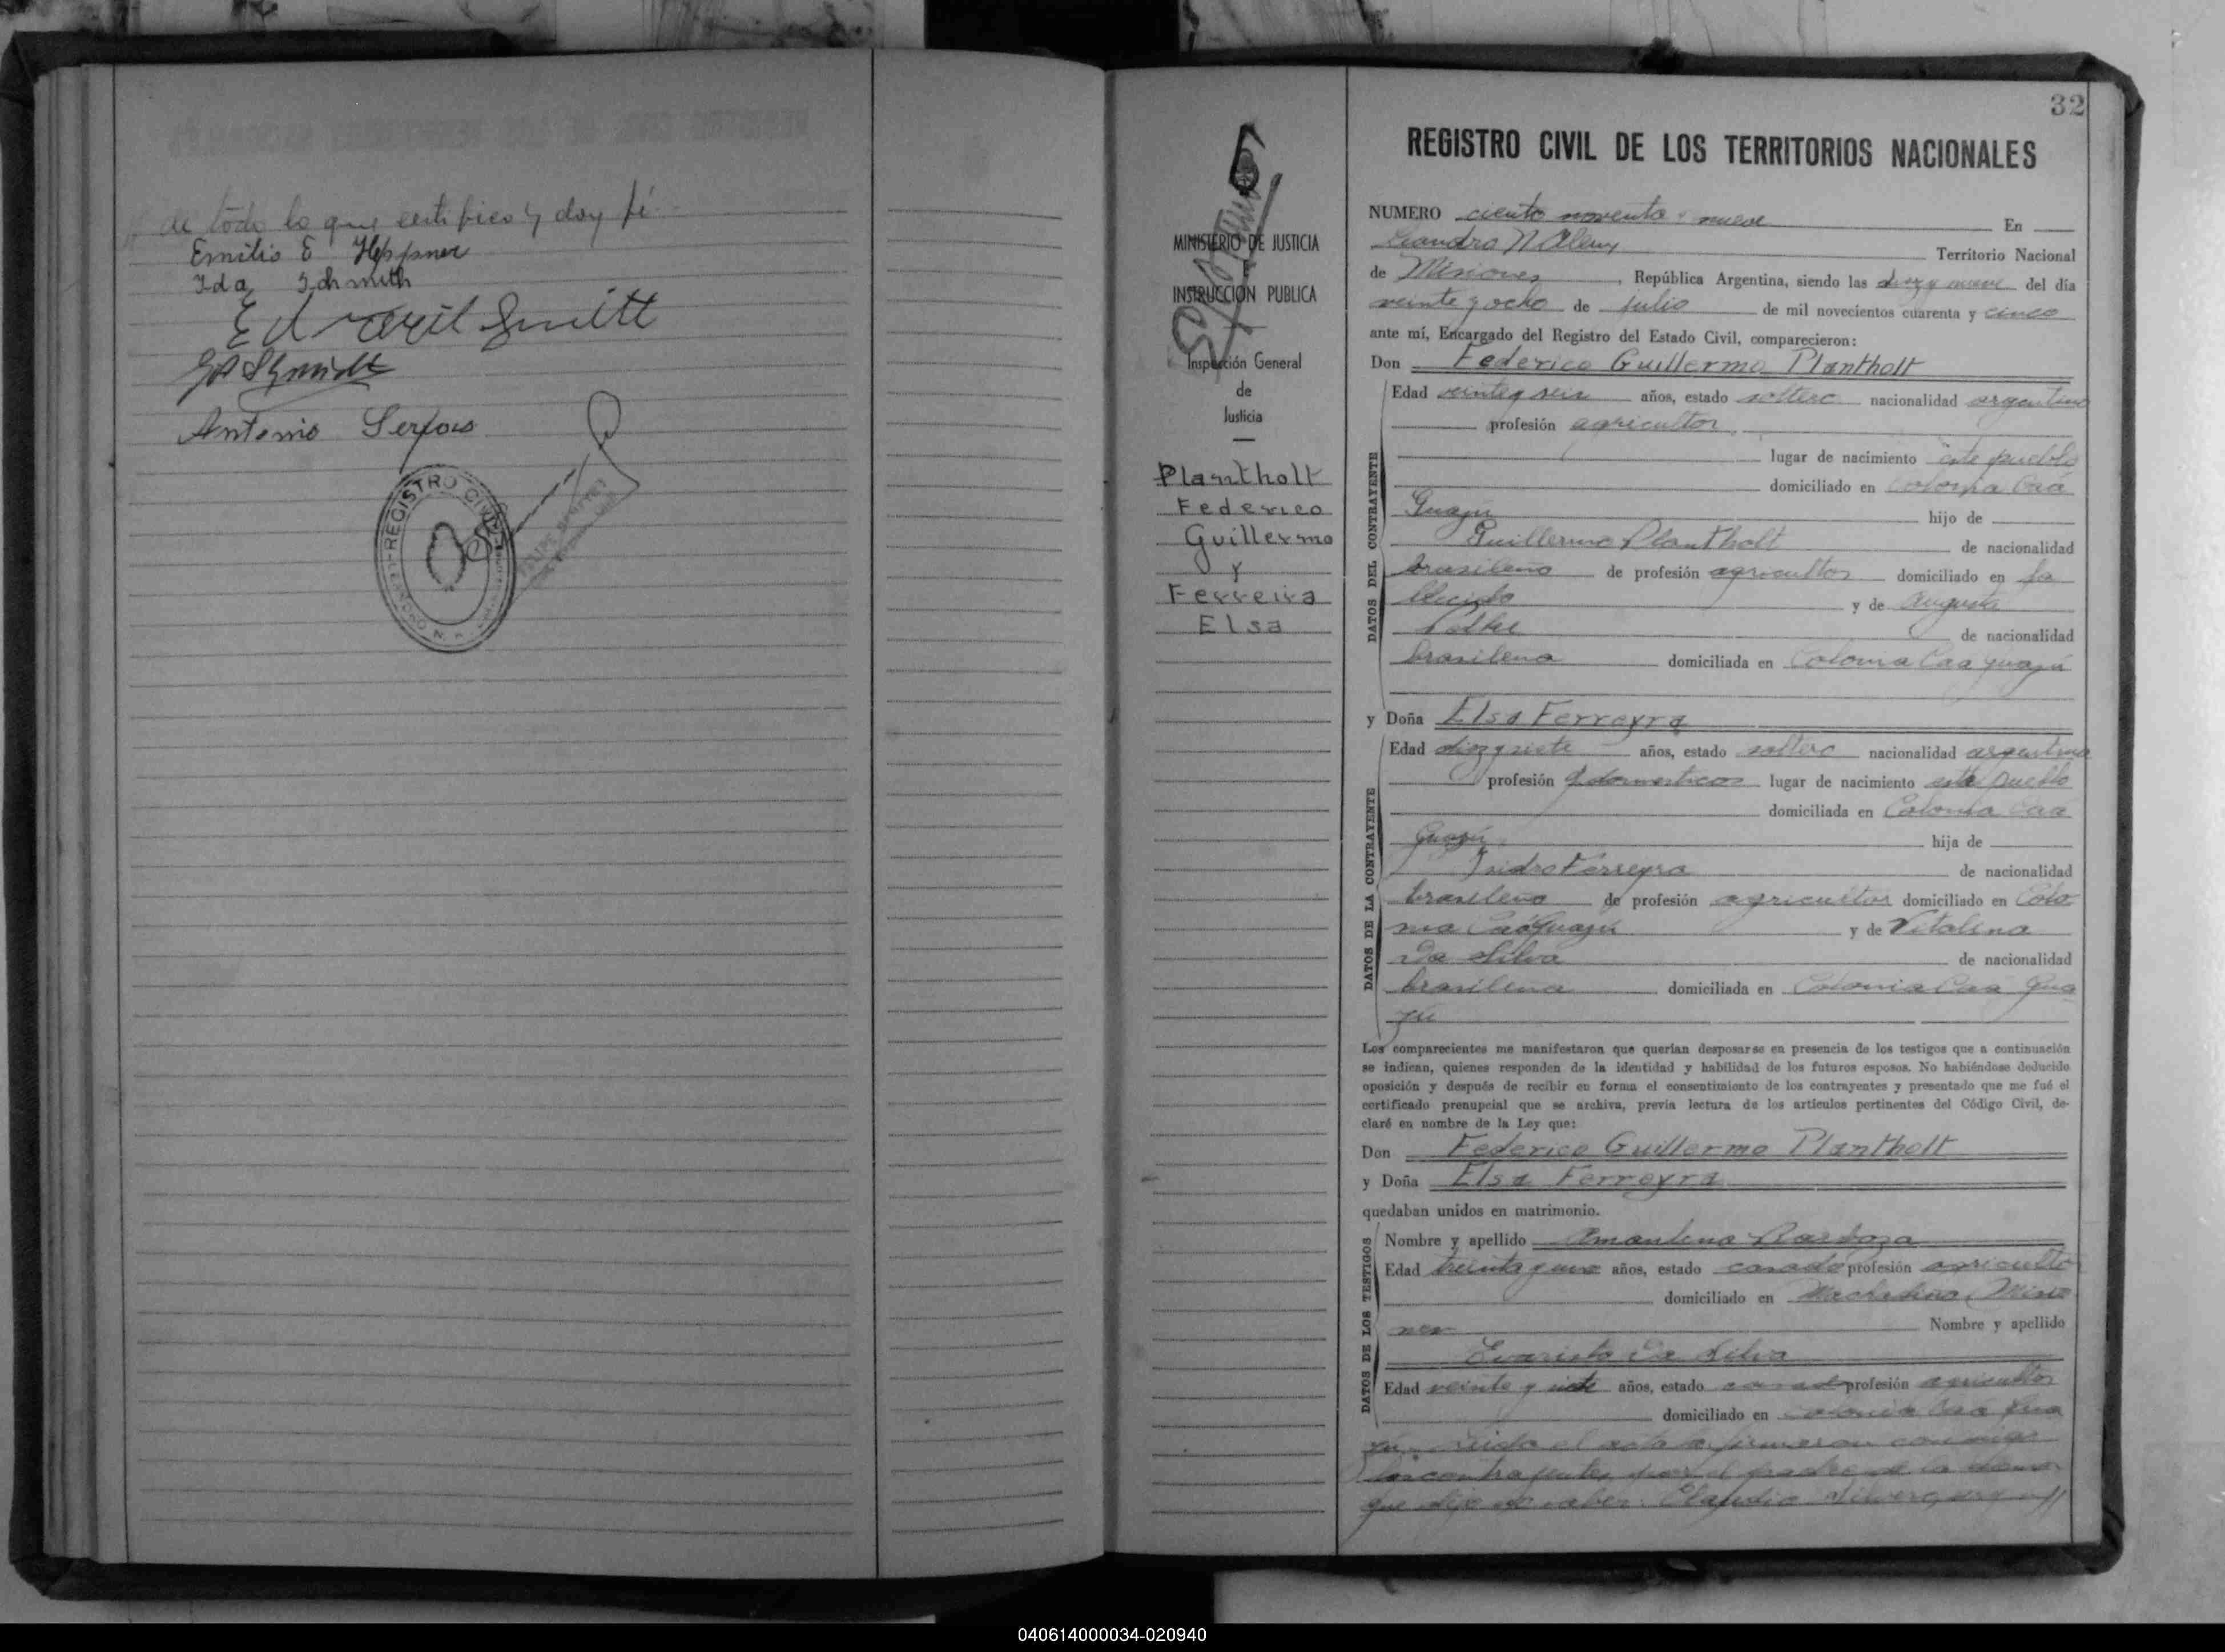 de todo lo que certifico y doy fé
Emilio E Heppner
Ida Schmith
Antonio
REGISTRO CIVIL
32
REGISTRO CIVIL DE LOS TERRITORIOS NACIONALES
MINISTERIO DE JUSTICIA
E
INSTRUCCIÓN PUBLICA
Inspección General
de
Justicia
Plantholt
Federico
Guillermo
y
Ferreira
Elsa
NUMERO ciento noventa y nueve En
Leandro N Alem Territorio Nacional
de Misiones, República Argentina, siendo las diez y nueve del día
veinte y ocho de julio de mil novecientos cuarenta y cinco
ante mí, Encargado del Registro del Estado Civil, comparecieron:
Don Federico Guillermo Plantholt
DATOS DEL CONTRAYENTE
Edad veinte y seis años, estado soltero nacionalidad argentino
profesión agricultor
lugar de nacimiento este pueblo
domiciliado en Colonia Caá
Guazú hijo de
Guillermo Plantholt de nacionalidad
brasileño de profesión agricultor domiciliado en fa
llecido y de Augusta
de nacionalidad
brasilena domiciliada en Colonia Caa guazú
y Doña Elsa Ferreyra
DATOS DE LA CONTRAYENTE
Edad diez y siete años, estado soltero nacionalidad argentina
profesión q. domesticos lugar de nacimiento este pueblo
domiciliada en Colonia Caá
Guazú hija de
Isidro Ferreyra de nacionalidad
brasileno de profesión agricultor domiciliado en Colo
nia Caáguazú y de Vitalina
Da Silva de nacionalidad
brasilena domiciliada en Colonia Caa Gua
zú
Los comparecientes me manifestaron que querían desposarse en presencia de los testigos que a continuación
se indican, quienes responden de la identidad y habilidad de los futuros esposos. No habiéndose deducido
oposición y después de recibir en forma el consentimiento de los contrayentes y presentado que me fué el
certificado prenupcial que se archiva, previa lectura de los artículos pertinentes del Código Civil, de-
claré en nombre de la Ley que:
Don Federico Guillermo Plantholt
y Doña Elsa Ferreyra
quedaban unidos en matrimonio.
DATOS DE LOS TESTIGOS
Nombre y apellido Amantino Barboza
Edad treinta y uno años, estado casado profesión agricultor
domiciliado en Misio
nes Nombre y apellido
Evaristo Da Silva
Edad veinte y siete años, estado casado profesión agricultor
domiciliado en Colonia Caa Gua
zú. Leida el acta la firmaron conmigo
los contrayentes, por el padre de la
que dijo no saber. Claudio
040614000034-020940